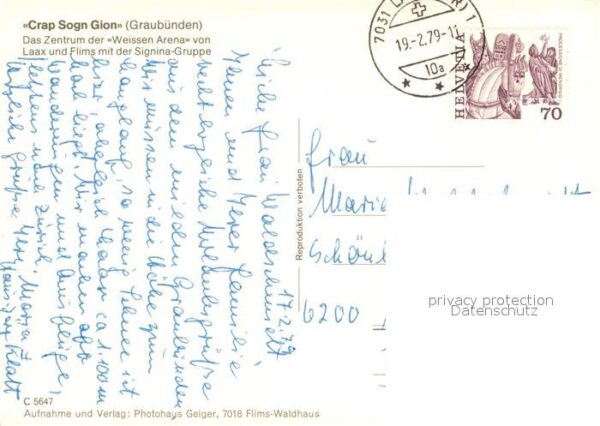 «Crap Sogn Gion» (Graubünden)
Das Zentrum der «Weissen Arena» von
Laax und Flims mit der Signina-Gruppe
7031 L R) 1
19.-2.79-1
10a
HELVETIA
70
17.2.79
Liebe Frau
Ihnen und Ihrer Familie
recht herzliche Urlaubsgrüße
aus dem Graubünden
Wir müssen in die Höhe zum
Langlauf, so wenig Schnee ist
hier, obgleich Laax ca 1.100 m
hoch liegt. Wir machen oft
Wanderungen und Ausflüge,
nach Zürich.
Herzliche Grüße Ihre Maria u.
Frau
Maria
Schön
6200
Reproduktion verboten
privacy protection
Datenschutz
C 5647
Aufnahme und Verlag: Photohaus Geiger, 7018 Flims-Waldhaus